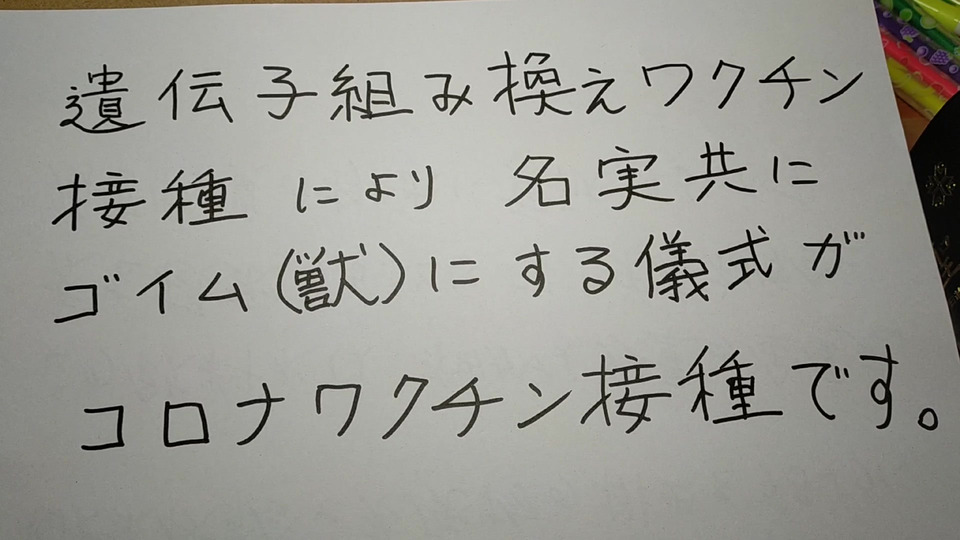 遺伝子組み換えワクチン
接種により名実共に
ゴイム(獣)にする儀式が
コロナワクチン接種です。